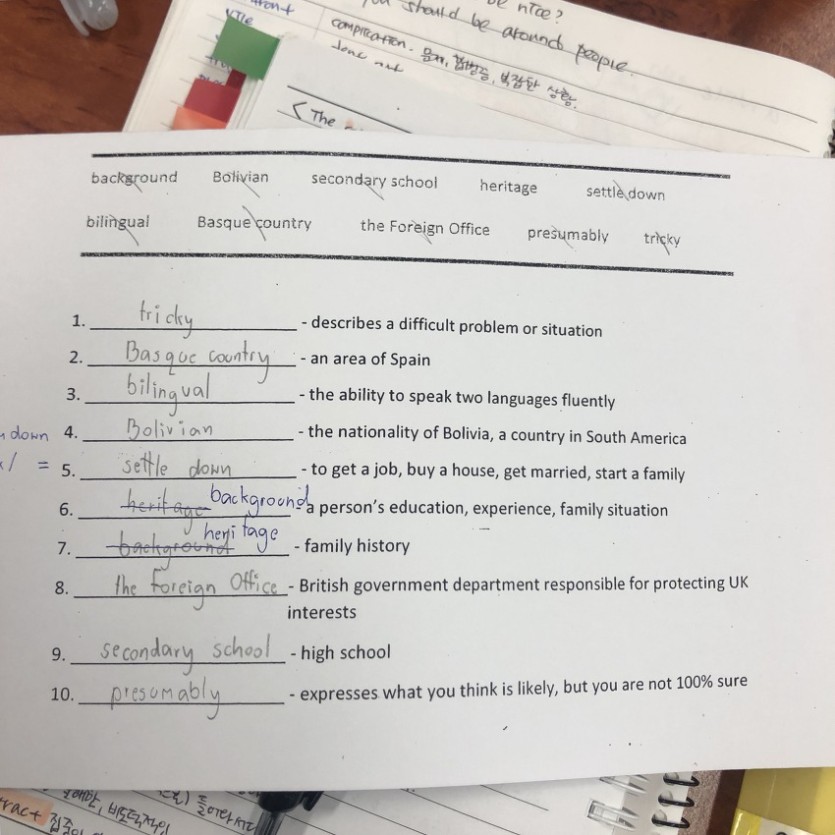 be nice?
should be around people.
complication. 문제, 합병증, 복잡한 상황.
< The
background Bolivian secondary school heritage settle down
bilingual Basque country the Foreign Office presumably tricky
1. tricky - describes a difficult problem or situation
2. Basque country - an area of Spain
3. bilingual - the ability to speak two languages fluently
down 4. Bolivian - the nationality of Bolivia, a country in South America
= 5. settle down - to get a job, buy a house, get married, start a family
6. heritage background a person's education, experience, family situation
7. background heritage - family history
8. the Foreign Office - British government department responsible for protecting UK
interests
9. secondary school - high school
10. presumably - expresses what you think is likely, but you are not 100% sure